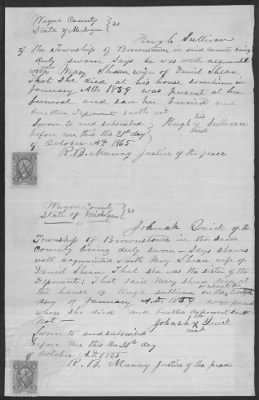 Wayne County } ss
State of Michigan }
Hugh Sullivan
of the Township of Brownstown in said county being
duly sworn Says he was well acquainted
with Mary Shean wife of Daniel Shean,
That She died at his house sometime in
January A.D. 1859 was present at her
funeral and saw her buried and
further Deponent saith not
Sworn to and subscribed } Hugh his X mark Sullivan
before me this the 21st day }
of October A.D. 1865
R. B. Maway Justice of the peace
Wayne County } ss
State of Michigan }
Johnah Quick of the
Township of Brownstown in the same
County being duly sworn - Says she was
well acquainted with Mary Shean wife of
Daniel Shean That she was the sister of the
Deponent, That said Mary Shean died at
the house of Hugh Sullivan on the
of January A.D. 1859 was present
when she died and further deponent saith
not -
Johnah X Quick
mark
Sworn to and subscribed
before me this the 21st day
of October A.D. 1865
R. B. Maway Justice of the peace